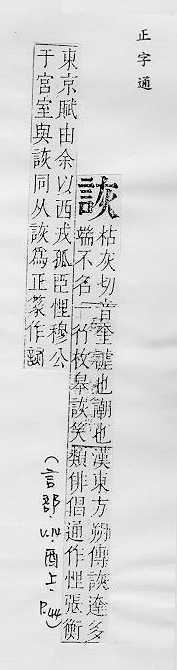 正字通
詼
枯灰切音謔也嘲也漢東方朔傳詼達多
端不名一行枚皋詼笑類俳倡通作悝張衡
東京賦由余以西戎孤臣悝穆公
于宮室與詼同从詼爲正篆作
(言部．酉上．P.44)